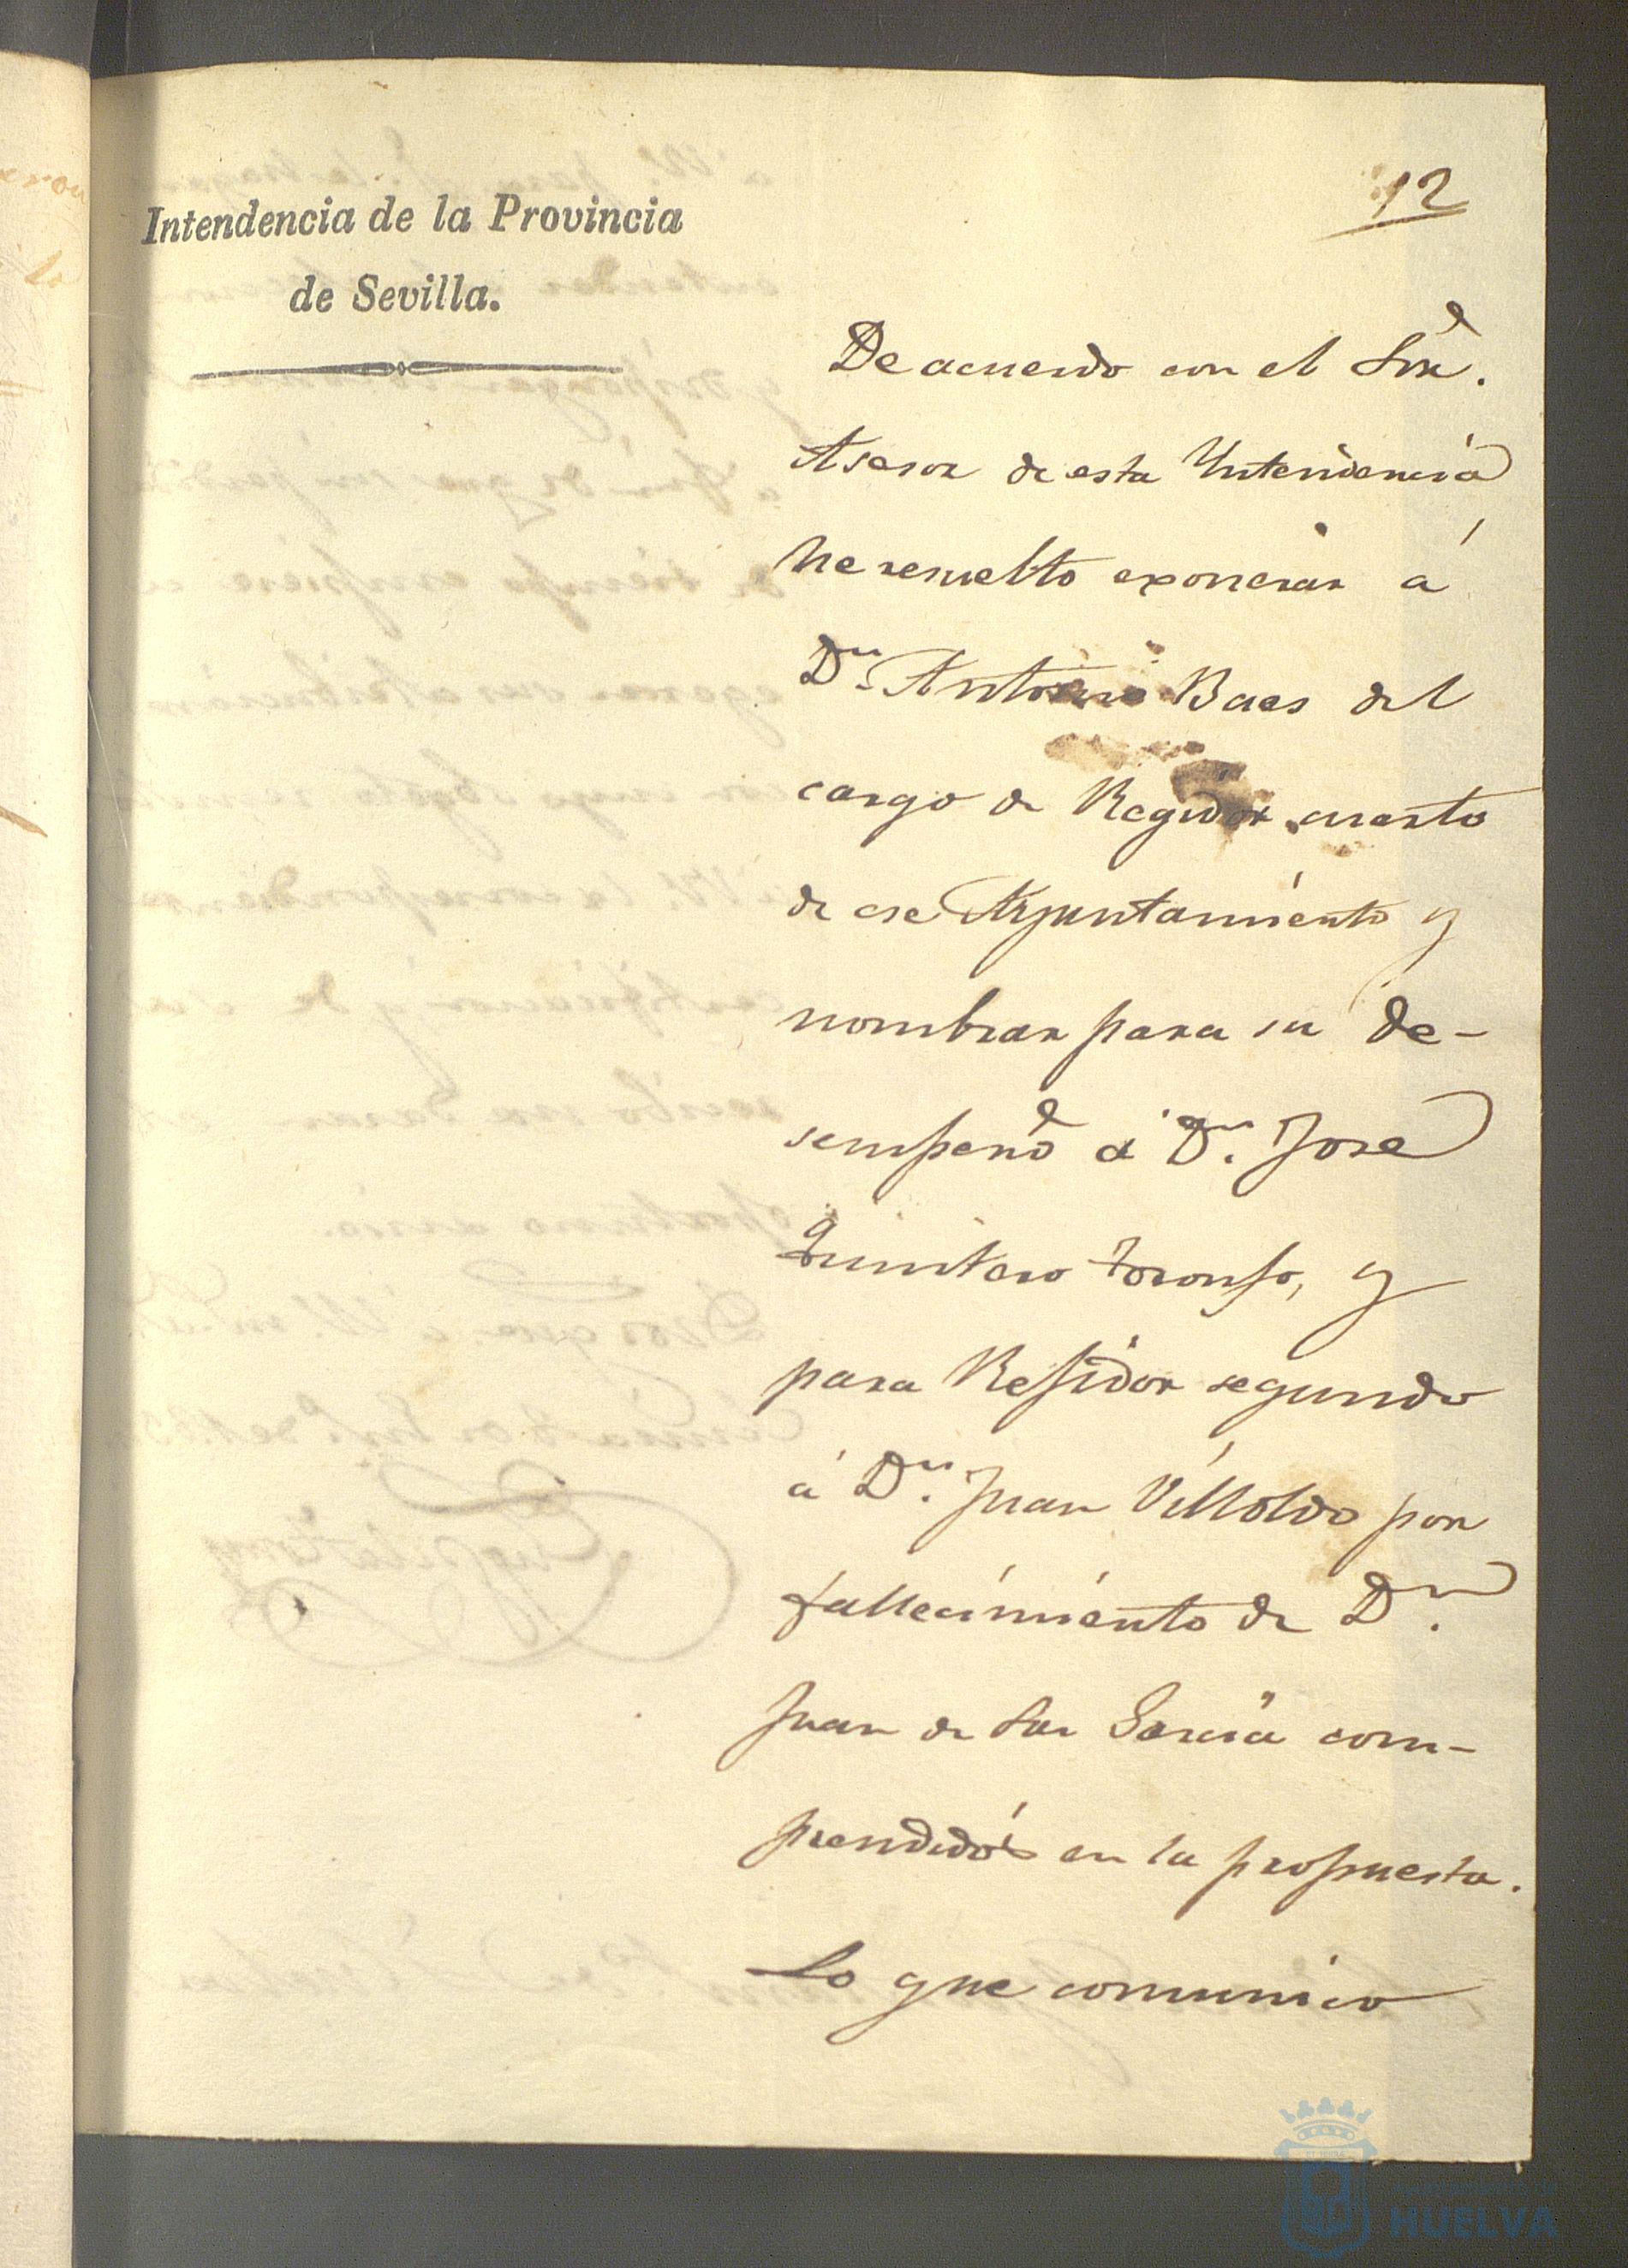 12
Intendencia de la Provincia
de Sevilla.
De acuerdo con el Sor.
Asesor de esta Yntendencia
he resuelto exonerar á
Dn. Antonio Baes del
cargo de Regidor cuarto
de ese Ayuntamiento y
nombrar para su de-
sempeño á Dn. Jose
Quintero, y
para Regidor segundo
á Dn. Juan Villoldo por
fallecimiento de Dn.
Juan de Garcia com-
prendidos en la propuesta.
Lo que comunico
HUELVA